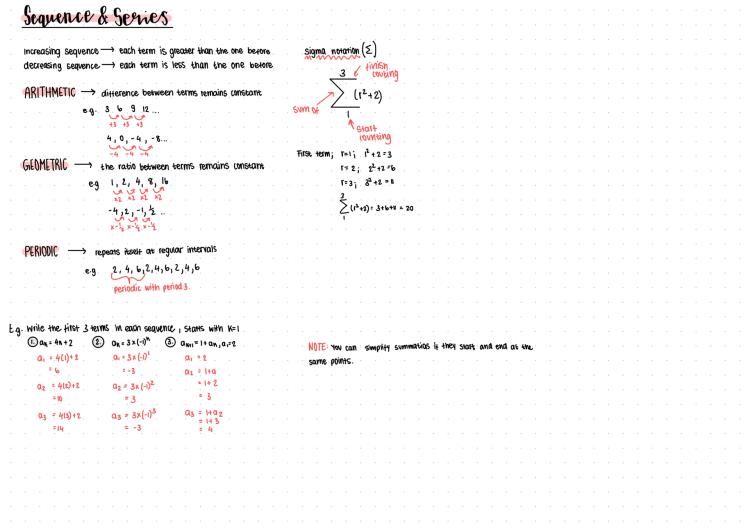 Sequence & Series
increasing sequence → each term is greater than the one before
decreasing sequence → each term is less than the one before
ARITHMETIC → difference between terms remains constant
e.g. 3 6 9 12 ...
+3 +3 +3
4, 0, -4, -8...
-4 -4 -4
GEOMETRIC → the ratio between terms remains constant
eg 1, 2, 4, 8, 16
x2 x2 x2 x2
-4, 2, -1, ½ ...
x-½ x-½ x-½
PERIODIC → repeats itself at regular intervals
e.g 2, 4, 6, 2, 4, 6, 2, 4, 6
periodic with period 3.
sigma notation (Σ)
3 finish counting
sum of → Σ (r²+2)
1
start counting
First term; r=1; 1²+2=3
r=2; 2²+2=6
r=3; 3²+2=11
3
Σ (r²+2) = 3+6+11 = 20
1
E.g. Write the first 3 terms in each sequence, starts with K=1
① aₙ = 4n+2 ② aₙ = 3×(-1)ⁿ ③ aₙ₊₁ = 1+aₙ, a₁=2
a₁ = 4(1)+2 a₁ = 3×(-1)¹ a₁ = 2
= 6 = -3 a₂ = 1+a
a₂ = 4(2)+2 a₂ = 3×(-1)² = 1+2
= 10 = 3 = 3
a₃ = 4(3)+2 a₃ = 3×(-1)³ a₃ = 1+a₂
= 14 = -3 = 1+3
= 4
NOTE: You can simplify summation if they start and end at the
same points.